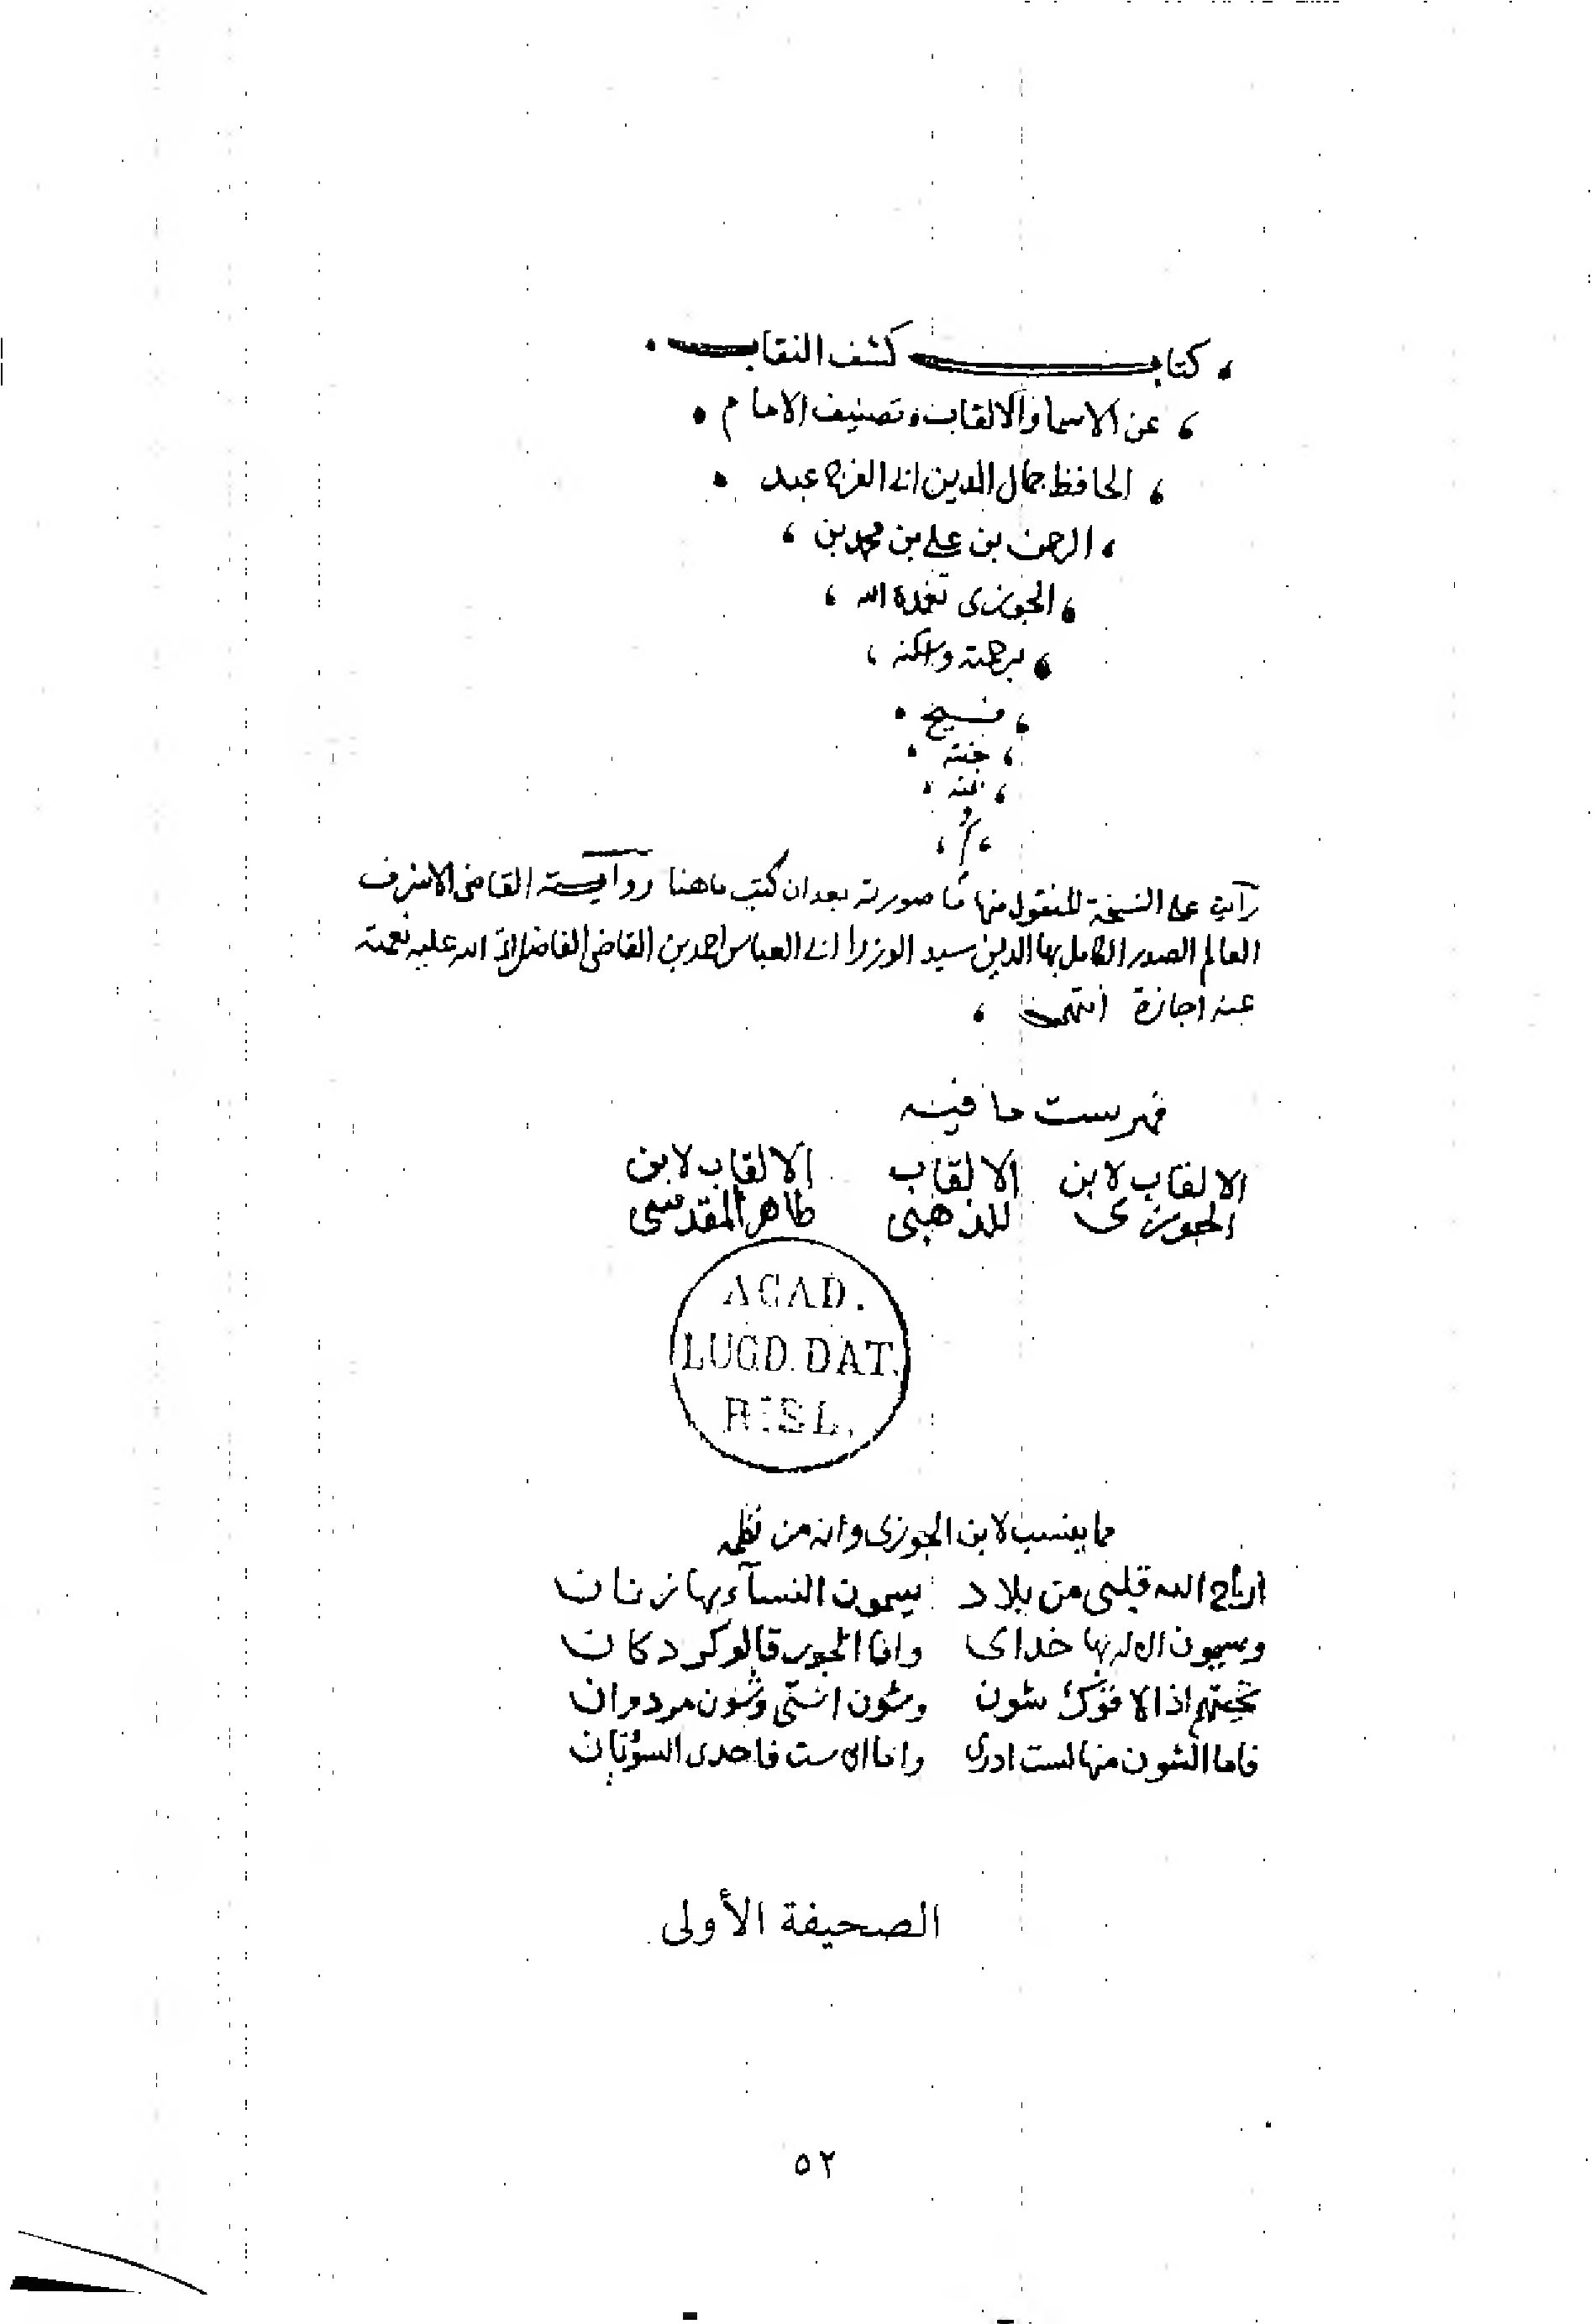 كتاب كشف النقاب
عن الاسما والالقاب تصنيف الامام
الحافظ جمال الدين ابي الفرج عبد
الرحمن بن علي بن محمد بن
الجوزى تغمده الله
برحمته واسكنه
فسيح
جنته
بمنه
رأيت على النسخة المنقول منها ما صورته بعد ان كتب ماهنا رواية القاضى الاشرف
العالم الصدر الكامل بها الدين سيد الوزرا ابي العباس احمد بن القاضى الفاضل الله عليه نعمته
عنه اجازة انتهى
فهرست ما فيه
الالقاب لابن الالقاب الالقاب لابن
الجوزى للذهبى طاهر المقدسى
ACAD.
LUGD. BAT.
BIBL.
مما ينسب لابن الجوزى وانه من نظمه
اراح الله قلبى من بلاد يسمون النسآء بها زنان
ويسمون الاله بها خداى واما الجوز قالو كردكان
تحيتهم اذا لاقوك شون وشون انتى وشون مردمان
فاما الشون منها لست ادرى واما است فاحدى السوتان
الصحيفة الأولى
٥٢